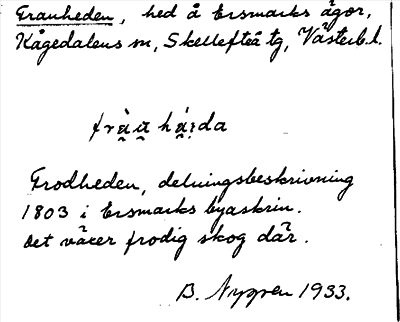 Franheden, hed å Ersmarks ägor,
Kågedalens sn, Skellefteå tg, Västerb. l.
Frodheden, delningsbeskrivning
1803 i Ersmarks byaskrin.
Det växer frodig skog där.
B. Nygren 1933.